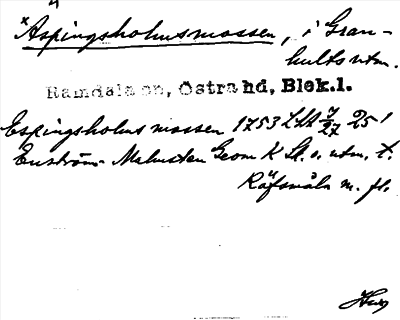 *Aspingsholmsmossen, i Gran-
hults utm.
Ramdala sn, Östra hd, Blek.l.
Espingsholms mossen 1753 LSA 7/27 25'
Enström-Malmsten Geom K Sk. o. utm. t.
Räfsmåla m. fl.